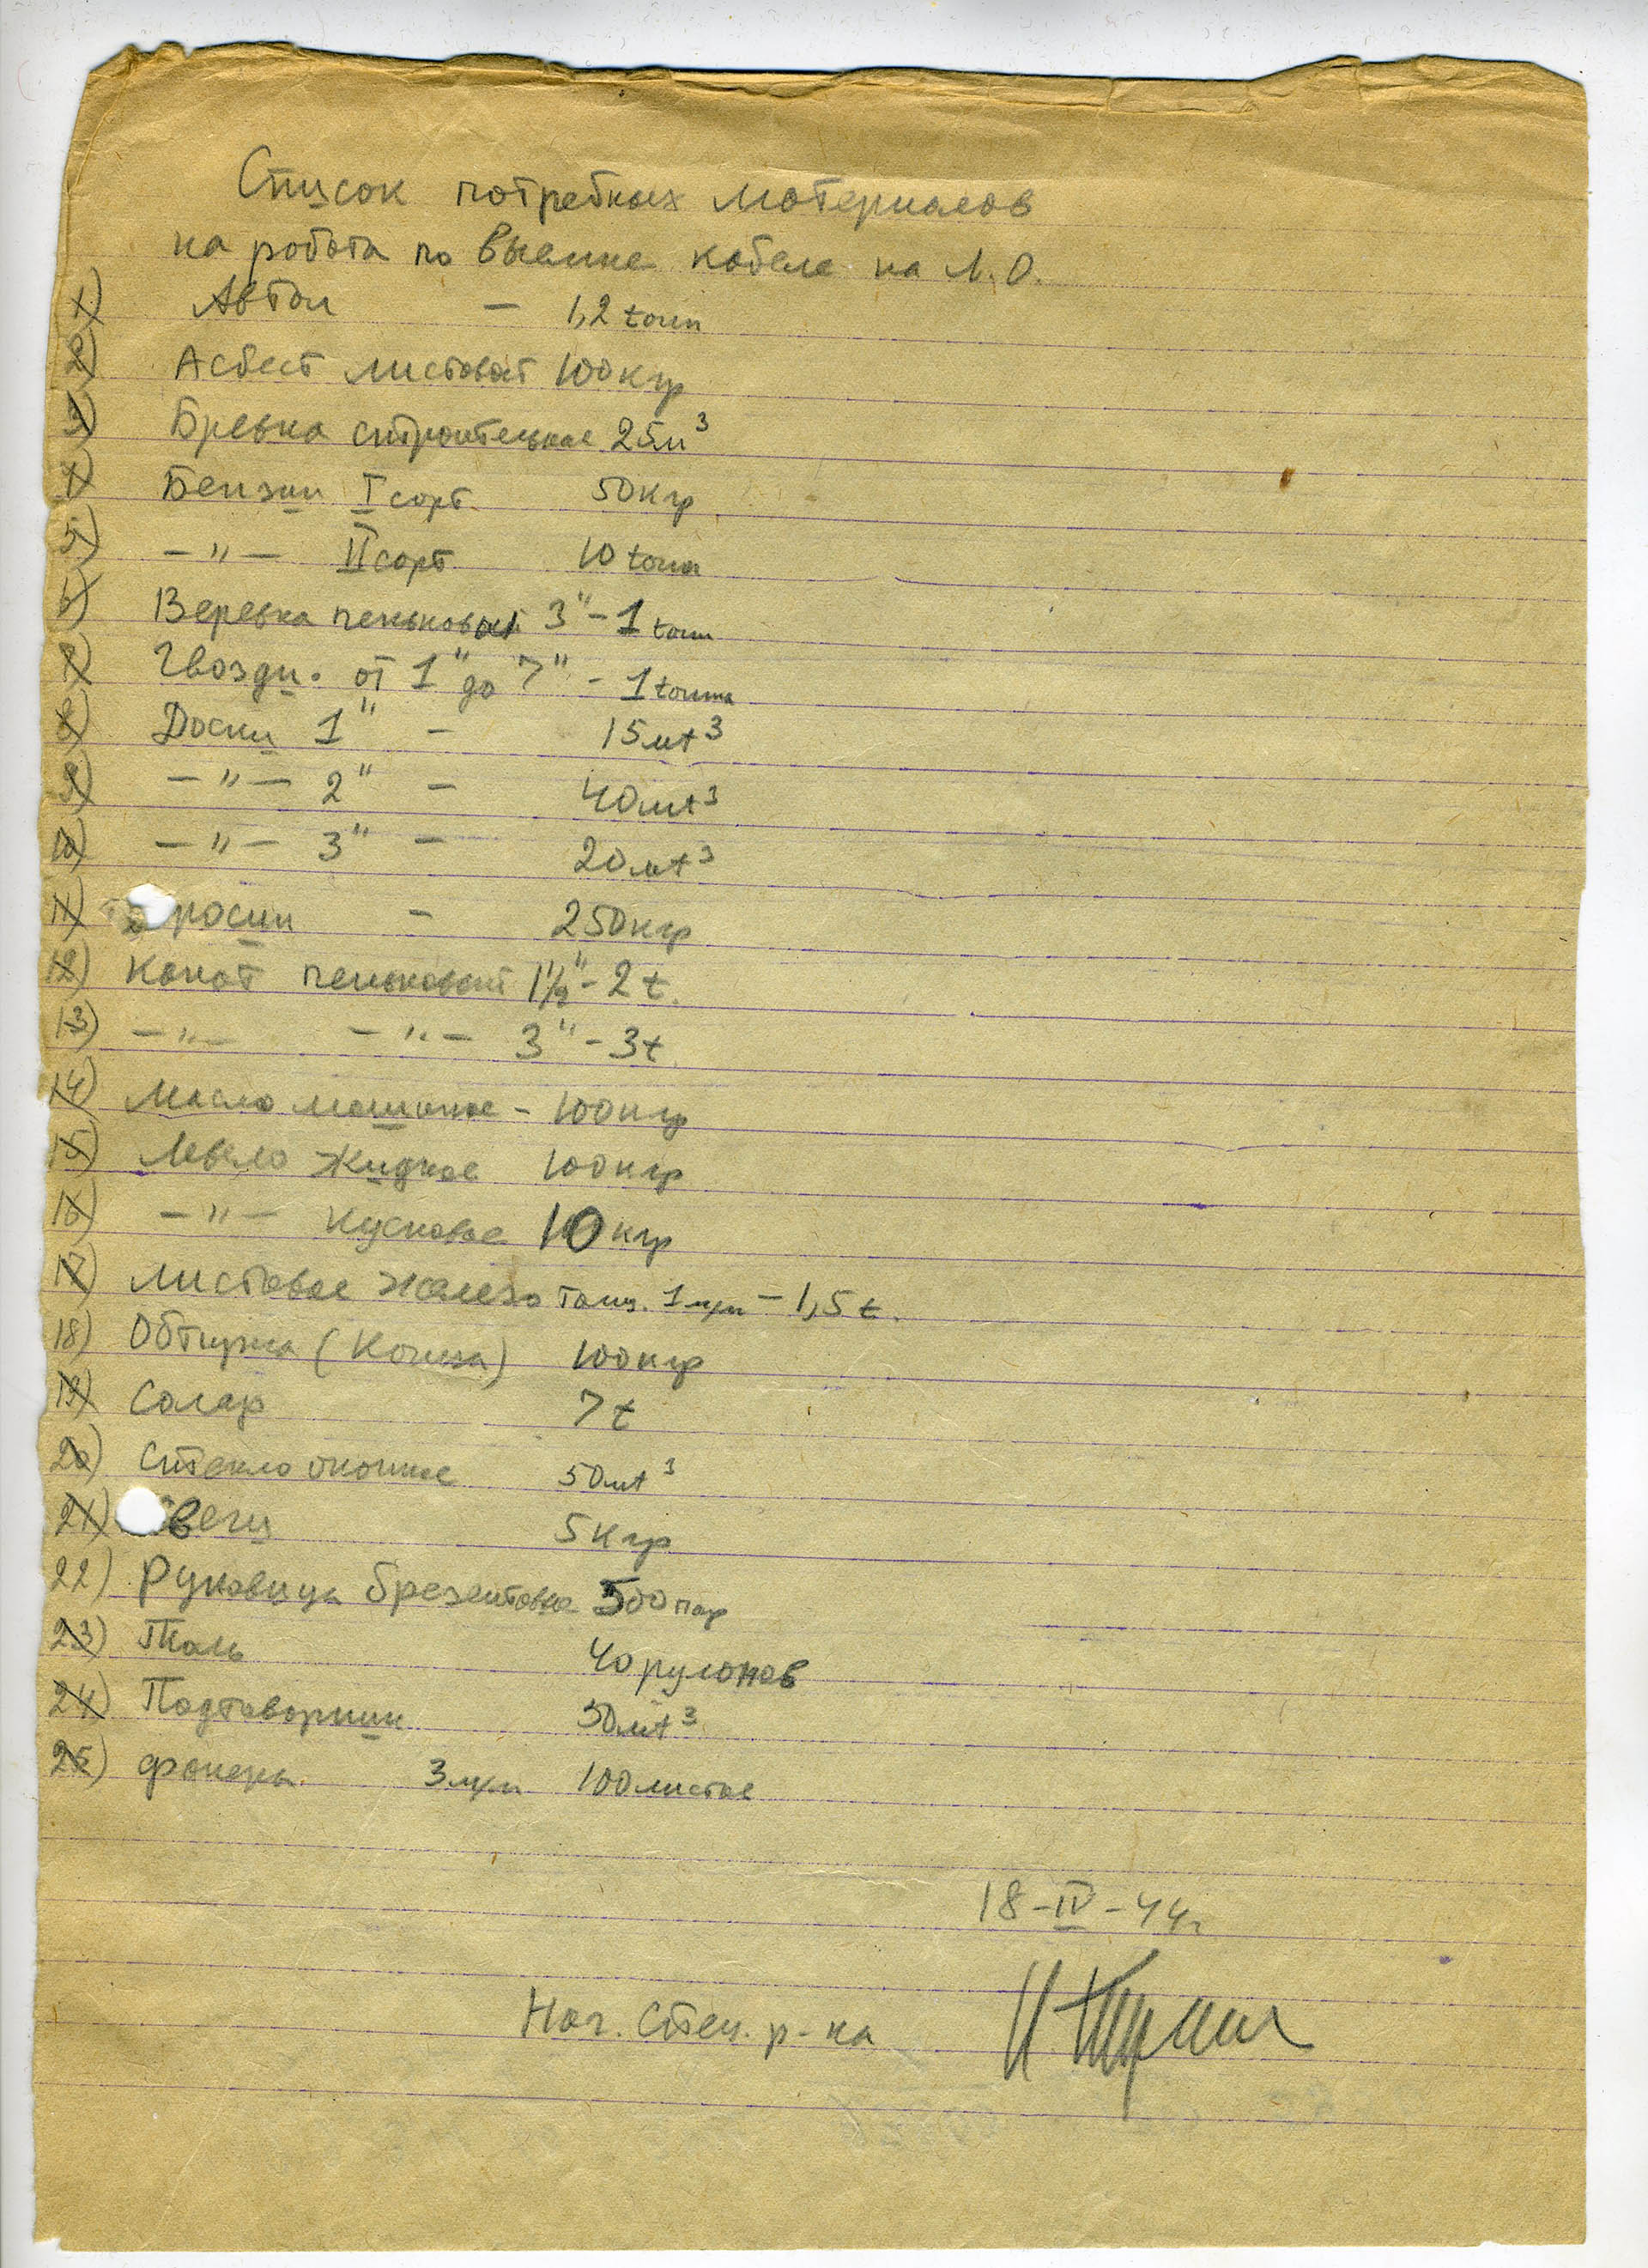 Список потребных материалов
на работа по выемке кабеля на Л.О.
1) Автол - 1,2 tонн
2) Асбест листовой 100 кгр
3) Бревна строительное 25 м³
4) Бензин I сорт. 50 кгр
5) —"— II сорт 10 tонн
6) Веревка пеньковый 3" - 1 tонн
7) Гвозди. от 1" до 7" - 1 tонна
8) Доски 1" - 15 мt³
9) —"— 2" - 40 мt³
10) —"— 3" - 20 мt³
11) росин - 250 кгр
12) Канат пеньковый 1½" - 2 t.
13) —"— —"— 3" - 3 t.
14) Масло машиное - 100 кгр
15) Мыло жидкое 100 кгр
16) —"— кусковое 10 кгр
17) Листовое железо толщ. 1 м/м - 1,5 t.
18) Обтирка ( ) 100 кгр
19) Соляр 7 t
20) Стекло оконное 50 мt³
21) вечи 5 кгр
22) Руковицы брезентовые 500 пар
23) Толь 40 рулонов
24) Подтоварник 30 мt³
25) фанеры 3 м/м 100 листов
18-IV-44г.
Нач. Стец. р-ка